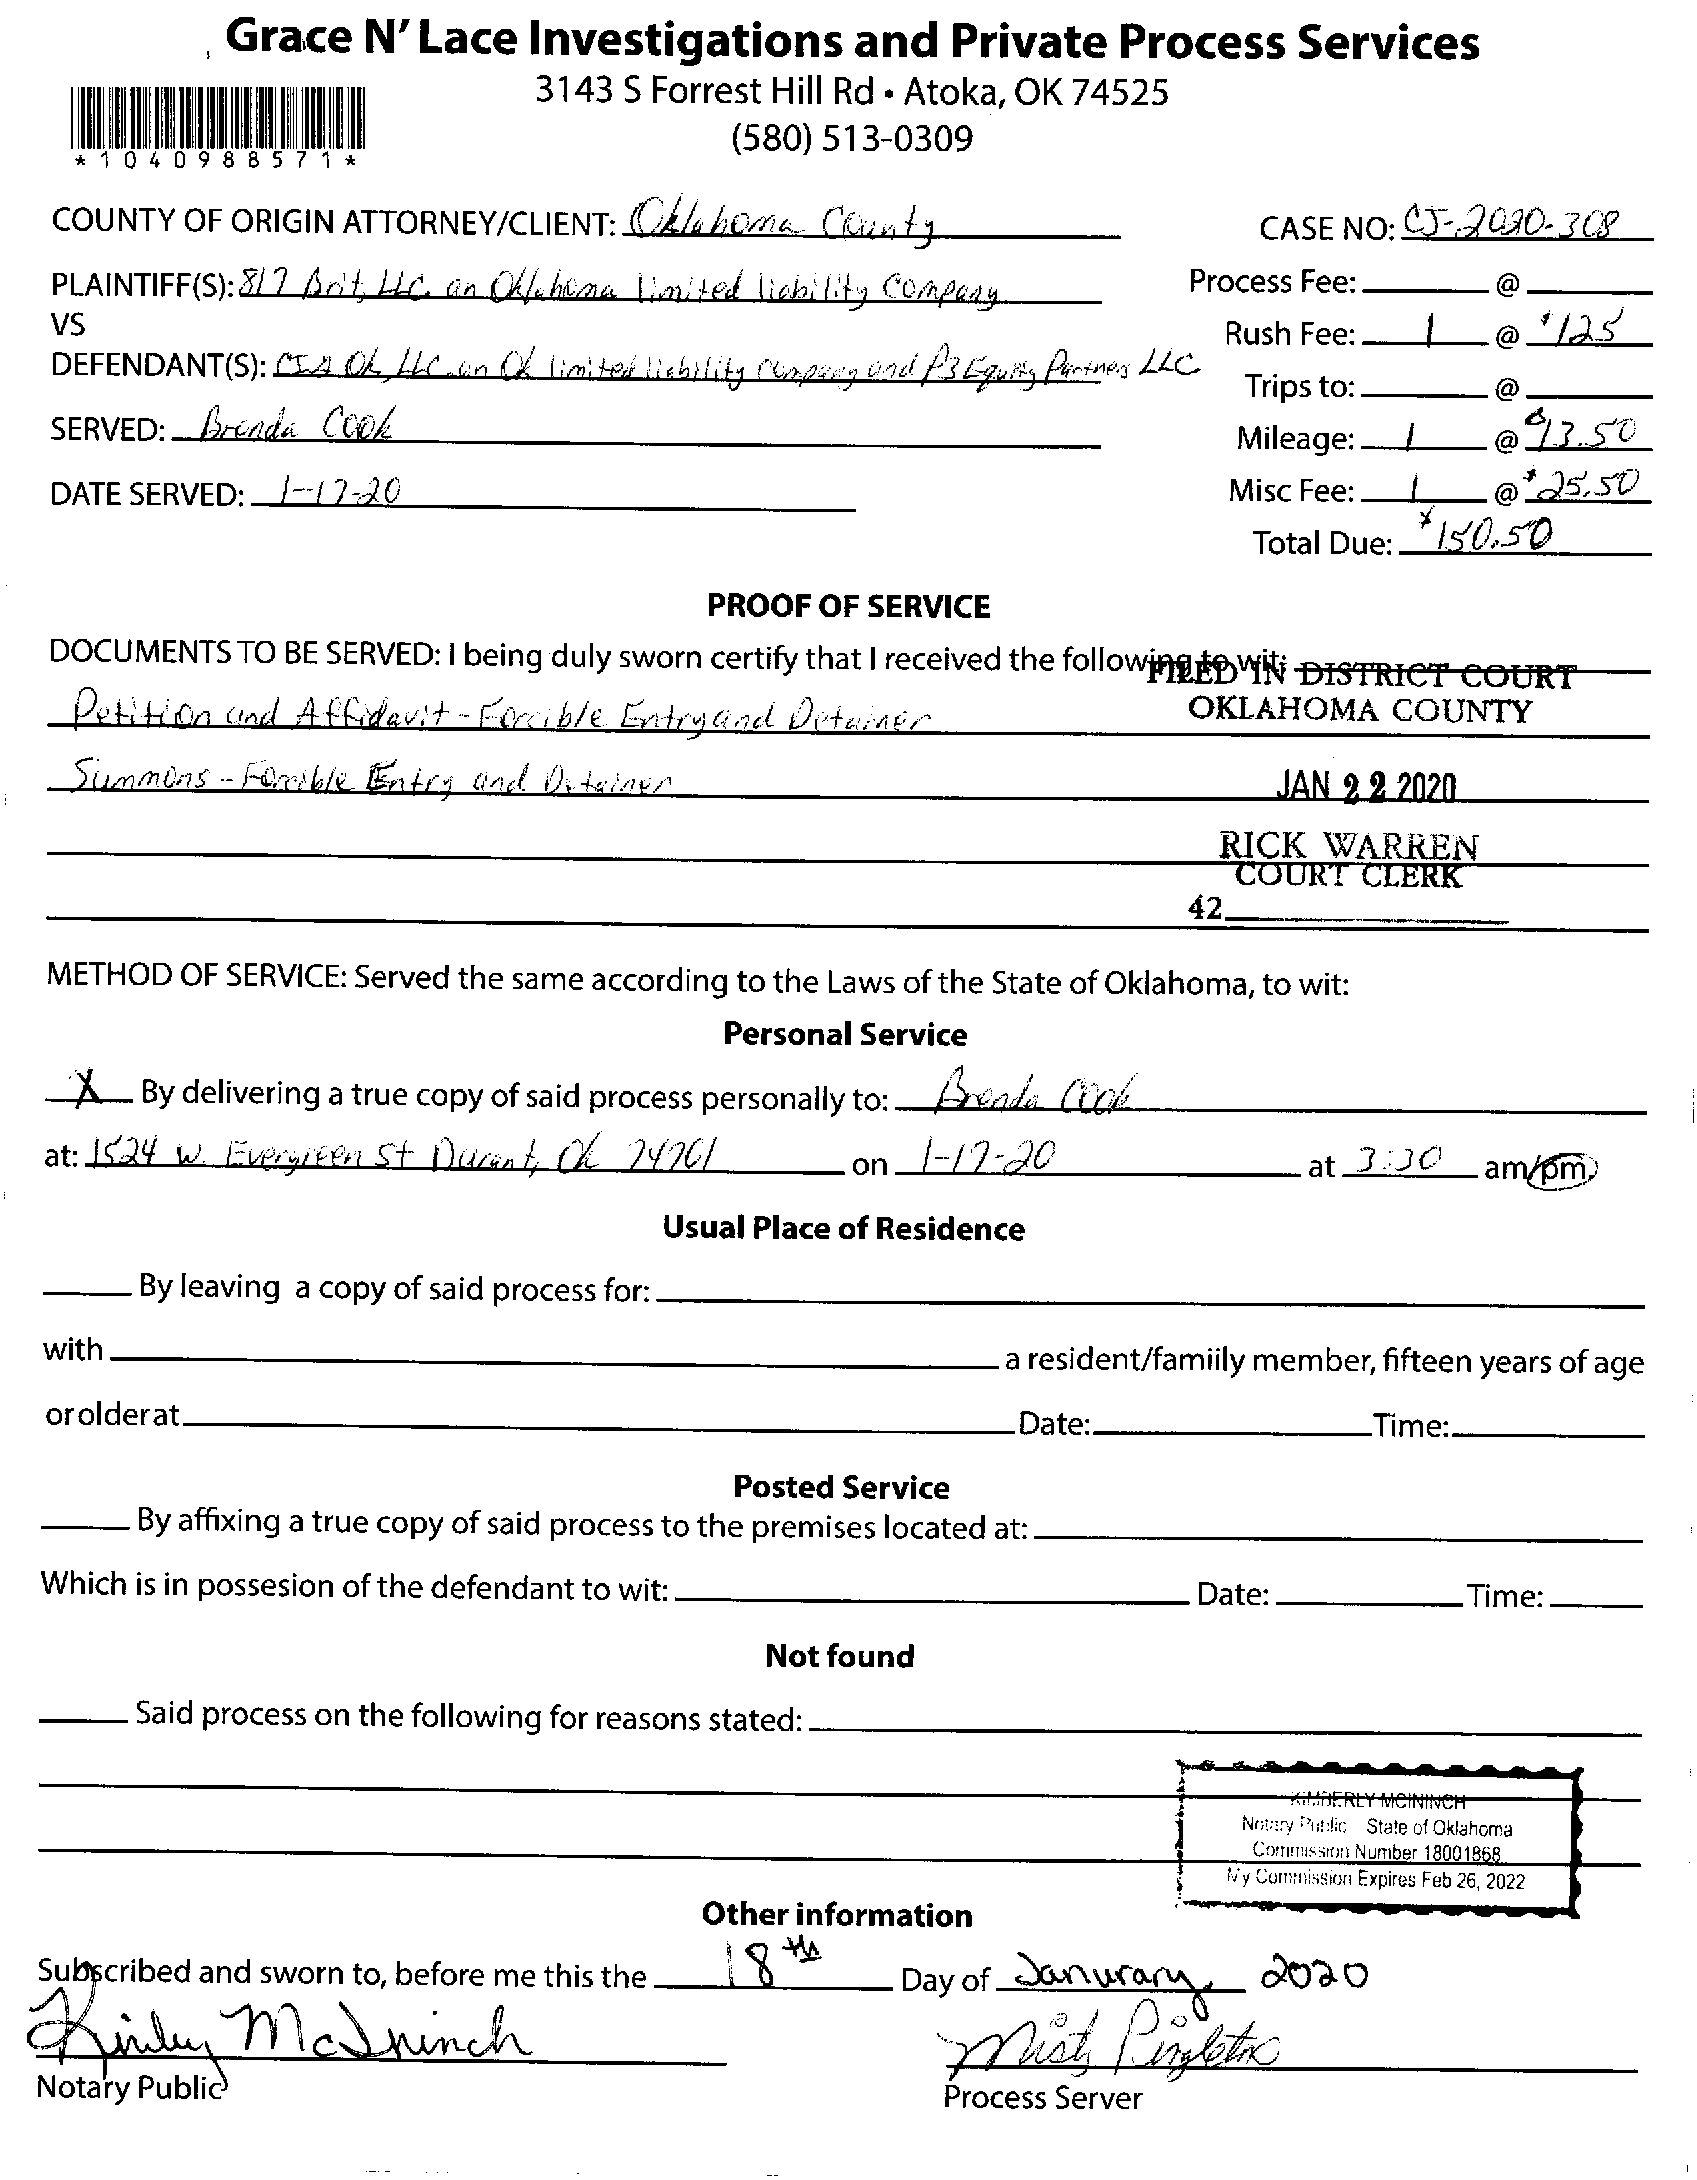 Grace N' Lace Investigations and Private Process Services
3143 S Forrest Hill Rd • Atoka, OK 74525
(580) 513-0309
*1040988571*
COUNTY OF ORIGIN ATTORNEY/CLIENT: Oklahoma County
CASE NO: CJ-2020-308
PLAINTIFF(S): 817 Brit, LLC. an Oklahoma limited liability Company
Process Fee: @
VS
Rush Fee: 1 @ $125
DEFENDANT(S): CISA Ok, LLC. an Ok limited liability company and P3 Equity Partners LLC
Trips to: @
SERVED: Brenda Cook
Mileage: 1 @ $93.50
DATE SERVED: 1-17-20
Misc Fee: 1 @ $25.50
Total Due: $150.50
PROOF OF SERVICE
DOCUMENTS TO BE SERVED: I being duly sworn certify that I received the following to wit:
FILED IN DISTRICT COURT
OKLAHOMA COUNTY
Petition and Affidavit - Forcible Entry and Detainer
Summons - Forcible Entry and Detainer
JAN 22 2020
RICK WARREN
COURT CLERK
42
METHOD OF SERVICE: Served the same according to the Laws of the State of Oklahoma, to wit:
Personal Service
X By delivering a true copy of said process personally to: Brenda Cook
at: 1524 W. Evergreen St Durant, Ok 74701 on 1-17-20 at 3:30 am/pm.
Usual Place of Residence
By leaving a copy of said process for:
with a resident/famiily member, fifteen years of age
or older at Date: Time:
Posted Service
By affixing a true copy of said process to the premises located at:
Which is in possesion of the defendant to wit: Date: Time:
Not found
Said process on the following for reasons stated:
KIMBERLY MCININCH
Notary Public State of Oklahoma
Commission Number 18001868
My Commission Expires Feb 26, 2022
Other information
Subscribed and sworn to, before me this the 18th Day of Janurary, 2020
Kimberly McIninch
Misty Pingleton
Notary Public
Process Server